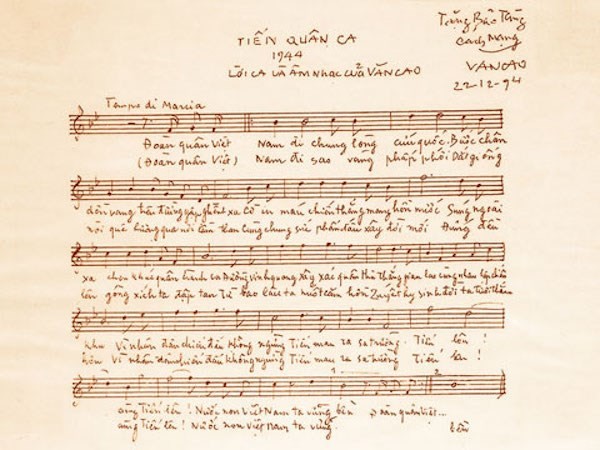 Tặng Bảo Tàng
Cách Mạng
VANCAO
22-12-94
TIẾN QUÂN CA
1944
LỜI CA VÀ ÂM NHẠC CỦA VĂN CAO
Tempo di Marcia
Đoàn quân Việt Nam đi chung lòng cứu quốc. Bước chân
(Đoàn quân Việt) Nam đi sao vàng phấp phới Dắt giống
dồn vang trên đường gập ghềnh xa Cờ in máu chiến thắng mang hồn nước Súng ngoài
nòi quê hương qua nơi lầm than Cùng chung sức phấn đấu xây đời mới Đứng đều
xa chen khúc quân hành ca Đường vinh quang xây xác quân thù Thắng gian lao cùng nhau lập chiến
lên gông xích ta đập tan Từ bao lâu ta nuốt căm hờn Quyết hy sinh đời ta tươi thắm
khu Vì nhân dân chiến đấu không ngừng Tiến mau ra sa trường. Tiến lên!
hơn Vì nhân dân chiến đấu không ngừng Tiến mau ra sa trường Tiến lên!
cùng Tiến lên! Nước non Việt Nam ta vững bền Đoàn quân Việt...
cùng Tiến lên! Nước non Việt Nam ta vững bền